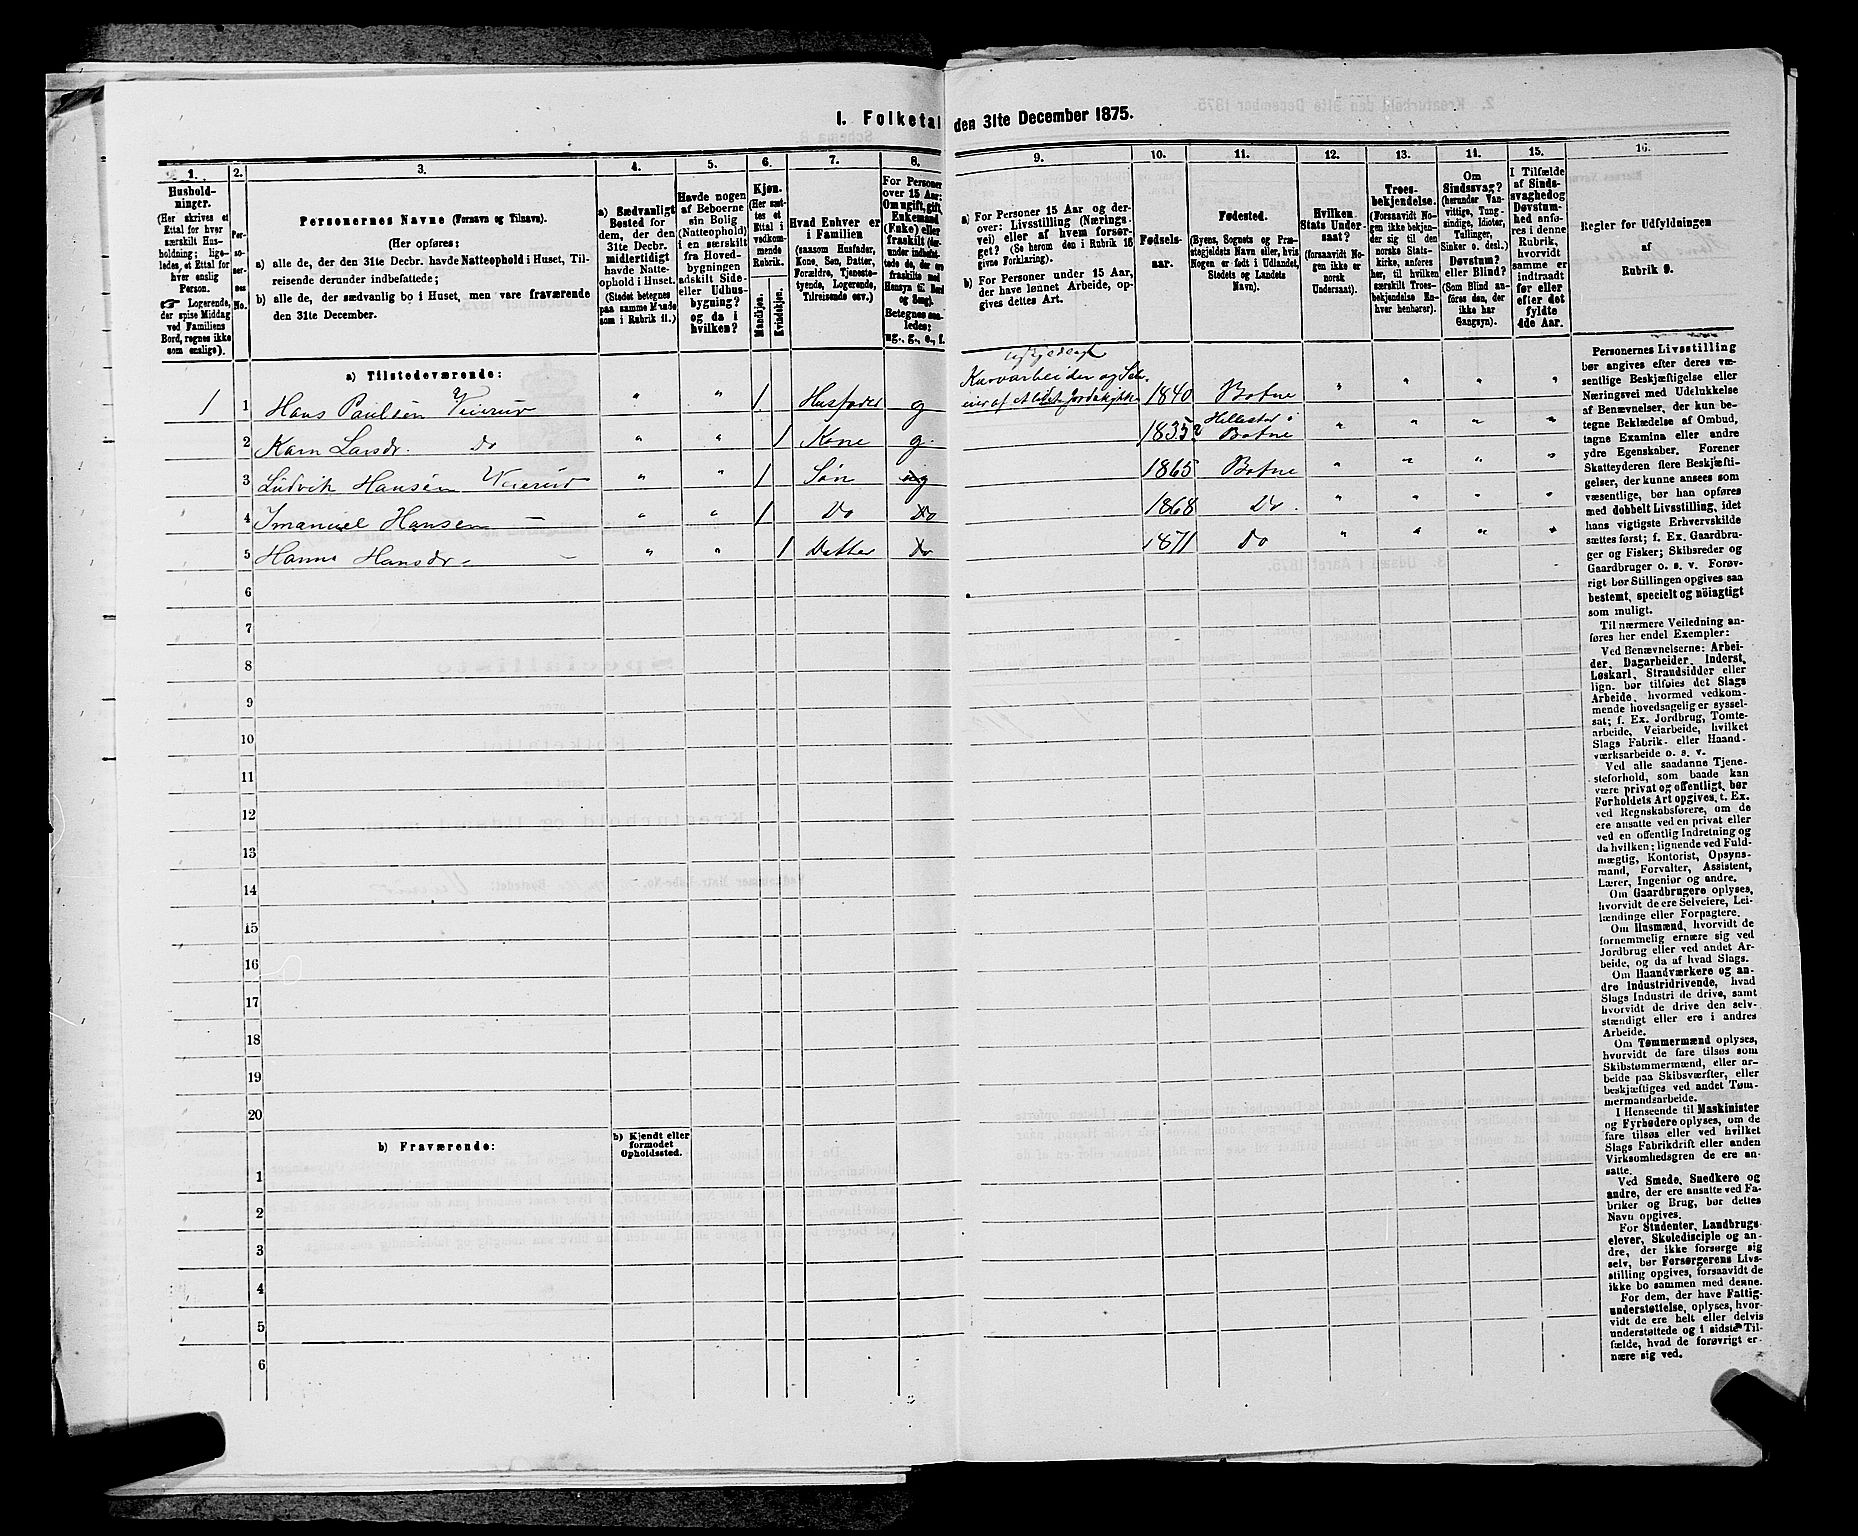 I. Folketal den 31te December 1875.
1.
Hushold-
ninger.
(Her skrives et
Ettal for hver
særskilt Hus-
holdning; lige-
ledes, et Ettal for
hver enslig
Person.
☞ Logerende,
der spise Middag
ved Familiens
Bord, regnes ikke
som enslige).
2.
Per-
so-
ner-
nes
No.
3.
Personernes Navne (Fornavn og Tilnavn).
(Her opføres:
a) alle de, der den 31te Decbr. havde Natteophold i Huset, Til-
reisende derunder indbefattede;
b) alle de, der sædvanlig bo i Huset, men vare fraværende
den 31te December.
4.
a) Sædvanligt
Bosted for
dem, der den
31te Decbr.
midlertidigt
havde Natte-
ophold i Huset.
(Stedet betegnes
paa samme Maade
som i Rubrik 11.)
5.
Havde nogen
af Beboerne
sin Bolig
(Natteophold)
i en særskilt
fra Hoved-
bygningen
adskilt Side-
eller Udhus-
bygning?
og da i
hvilken?
6.
Kjøn.
(Her sæt-
tes et
Ettal i
vedkom-
mende
Rubrik.
Mandkjøn.
Kvindekjøn.
7.
Hvad Enhver er
i Familien
(saasom Husfader,
Kone, Søn, Datter,
Forældre, Tjeneste-
tyende, Logerende,
Tilreisende osv.)
8.
For Personer
over 15 Aar:
Om ugift, gift,
Enkemand
(Enke) eller
fraskilt (der-
under indbefat-
tede de, der ere
fraskilte med
Hensyn til Bord
og Seng).
Betegnes saa-
ledes:
ug., g., e., f.
9.
a) For Personer 15 Aar og der-
over: Livsstilling (Nærings-
vei) eller af hvem forsør-
get? (Se herom den i Rubrik 16
givne Forklaring).
b) For Personer under 15 Aar,
der have lønnet Arbeide, op-
gives dettes Art.
10.
Fødsels-
aar.
11.
Fødested.
(Byens, Sognets og Præ-
stegjeldets Navn eller, hvis
Nogen er født i Udlandet,
Stedets og Landets
Navn).
12.
Hvilken
Stats Under-
saat?
(forsaavidt No-
gen ikke er
norsk
Undersaat).
13.
Troes-
bekjendelse.
(Forsaavidt No-
gen ikke bekjen-
der sig til den
norske Stats-
kirke, anføres
her, til hvilken
særskilt Troes-
bekjendelse En-
hver henhører).
14.
Om
Sindssvag?
(herunder Van-
vittige, Tung-
sindige, Idioter,
Tullinger,
Sinker o. desl.)
Døvstum?
eller Blind?
(Som Blind an-
føres den, der
ikke har
Gangsyn).
15.
I Tilfælde
af Sinds-
svaghed og
Døvstum-
hed anfø-
res i denne
Rubrik,
hvorvidt
samme er
indtraadt
før eller
efter det
fyldte
4de Aar.
16.
Regler for Udfyldningen
af
Rubrik 9.
a) Tilstedeværende:
1 1 Hans Paulsen Veierud " " 1 Husfader g 1840 Botne " " " "
2 Karn Larsdr. Do " " 1 Kone g. 1835? Hillestad i Botne " " " "
3 Ludvik Hansen Veierud " " 1 Søn ug 1865 Botne " " " "
4 Imanuel Hansen — " " 1 Do Do 1868 Do. " " " "
5 Hanna Hansdr — " " 1 Datter Do 1871 Do " " " "
6
7
8
9
10
11
12
13
14
15
16
17
18
19
20
b) Fraværende:
b) Kjendt eller
formodet
Opholdssted.
1
2
3
4
5
6
Personernes Livsstilling
bør angives efter deres væ-
sentlige Beskjæftigelse eller
Næringsvei med Udelukkelse
af Benævnelser, der kun be-
tegne Beklædelse af Ombud,
tagne Examina eller andre
ydre Egenskaber. Forener
Skatteyderen flere Beskjæfti-
gelser, der kunne ansees som
væsentlige, bør han opføres
med dobbelt Livsstilling, idet
hans vigtigste Erhvervskilde
sættes først; f. Ex. Gaardbru-
ger og Fisker; Skibsreder og
Gaardbruger o. s. v. Forøv-
rigt bør Stillingen opgives saa
bestemt, specielt og nöiagtigt
som muligt.
Til nærmere Veiledning an-
føres her endel Exempler:
Ved Benævnelserne: Arbei-
der, Dagarbeider, Inderst,
Løskarl, Strandsidder eller
lign. bør tilføies det Slags
Arbeide, hvormed vedkom-
mende hovedsagelig er syssel-
sat; f. Ex. Jordbrug, Tomte-
arbeide, Veiarbeide, hvilket
Slags Fabrik- eller Haand-
værksarbeide o. s. v.
Ved alle saadanne Tjene-
steforhold, som baade kan
være privat og offentligt, bør
Forholdets Art opgives, t. Ex.
ved Regnskabsførere, om de
ere ansatte ved en privat eller
ved en offentlig Indretning og
da hvilken; lignende ved Fuld-
mægtig, Kontorist, Opsyns-
mand, Forvalter, Assistent,
Lærer, Ingeniør og andre.
Om Gaardbrugere oplyses,
hvorvidt de ere Selveiere, Lei-
lændinge eller Forpagtere.
Om Husmænd, hvorvidt de
fornemmelig ernære sig ved
Jordbrug eller ved andet Ar-
beide, og da af hvad Slags.
Om Haandværkere og an-
dre Industridrivende, hvad
Slags Industri de drive, samt
hvorvidt de drive den selv-
stændigt eller ere i andres
Arbeide.
Om Tømmermænd oplyses,
hvorvidt de fare tilsøs som
Skibstømmermænd, eller ar-
beide paa Skibsværfter, eller
beskjæftiges ved andet Tøm-
mermandsarbeide.
I Henseende til Maskinister
og Fyrbødere oplyses, om de
fare tilsøs eller ved hvilket
Slags Fabrikdrift eller anden
Virksomhedsgren de ere an-
satte.
Ved Smede, Snedkere og
andre, der ere ansatte ved Fa-
briker og Brug, bør dettes
Navn opgives.
For Studenter, Landbrugs-
elever, Skoledisciple og an-
dre, der ikke forsørge sig
selv, bør Forsørgerens Livs-
stilling opgives, forsaavidt de
ikke bo sammen med denne.
For dem, der have Fattig-
understøttelse, oplyses, hvor-
vidt de ere helt eller delvis
understøttede og i sidste Til-
fælde, hvad de forøvrigt er-
nære sig ved.